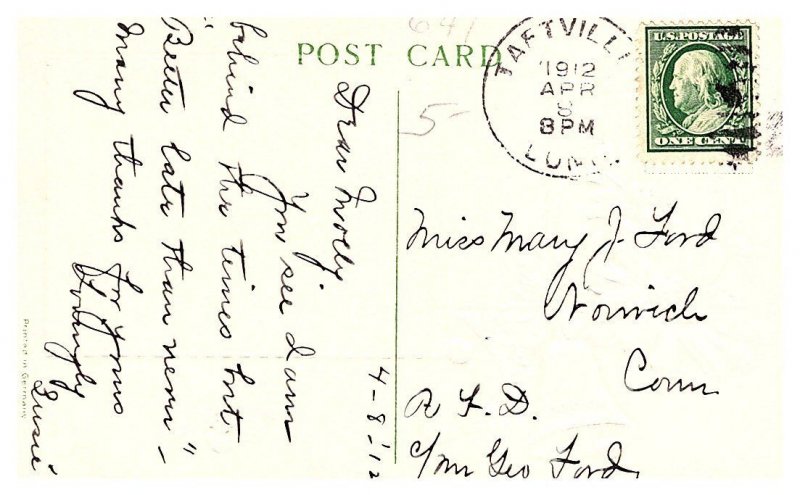 641
POST CARD
5-
TAFTVILLE
1912
APR
8 PM
CONN.
U.S. POSTAGE
ONE CENT
4-8-'12
Dear Molly,
You see I am
behind the times but
"Better late than never" -
Many thanks for yours
Lovingly
Susie
Miss Mary J. Ford
Norwich
Conn.
R. F. D.
c/o Mr Geo Ford.
Printed in Germany